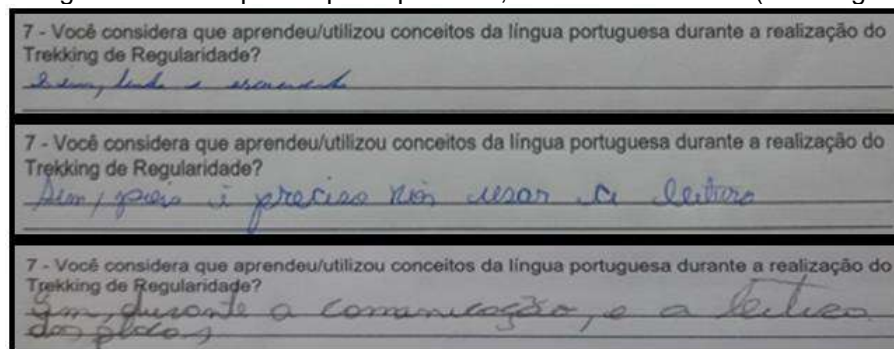 7 - Você considera que aprendeu/utilizou conceitos da língua portuguesa durante a realização do
Trekking de Regularidade?
Sim, lendo e escrevendo
7 - Você considera que aprendeu/utilizou conceitos da língua portuguesa durante a realização do
Trekking de Regularidade?
Sim, pois é preciso nós usar a leitura
7 - Você considera que aprendeu/utilizou conceitos da língua portuguesa durante a realização do
Trekking de Regularidade?
Sim, durante a comunicação, e a leitura
das placas